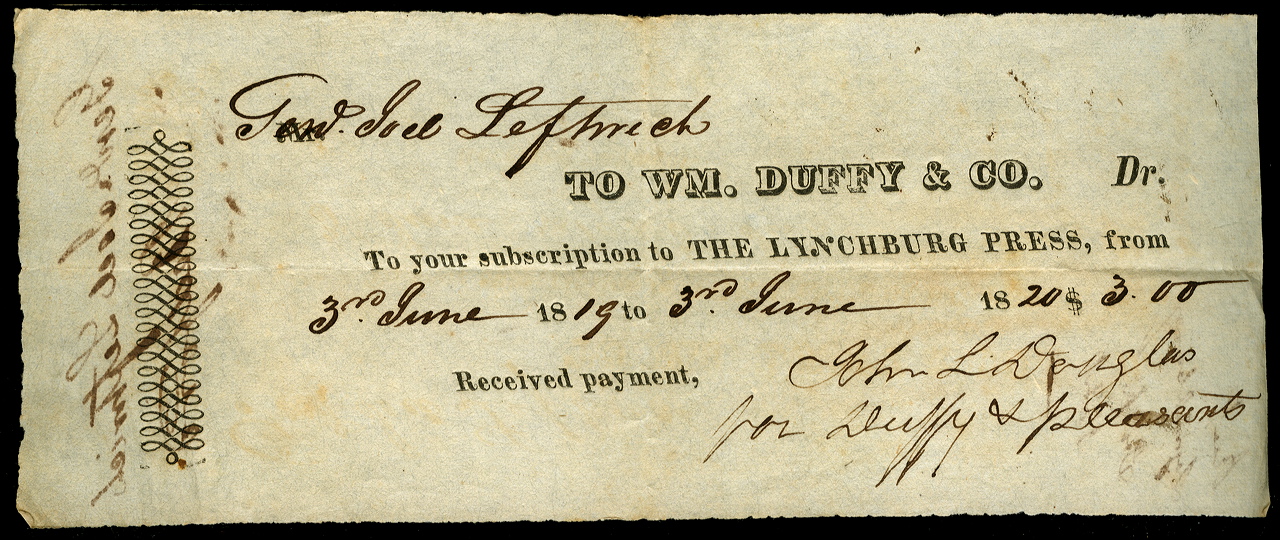 Genl. Joel Leftwich
TO WM. DUFFY & CO. Dr.
To your subscription to THE LYNCHBURG PRESS, from
3rd June 1819 to 3rd June 1820 $ 3.00
Received payment,
John L. Douglas
for Duffy & Pleasants